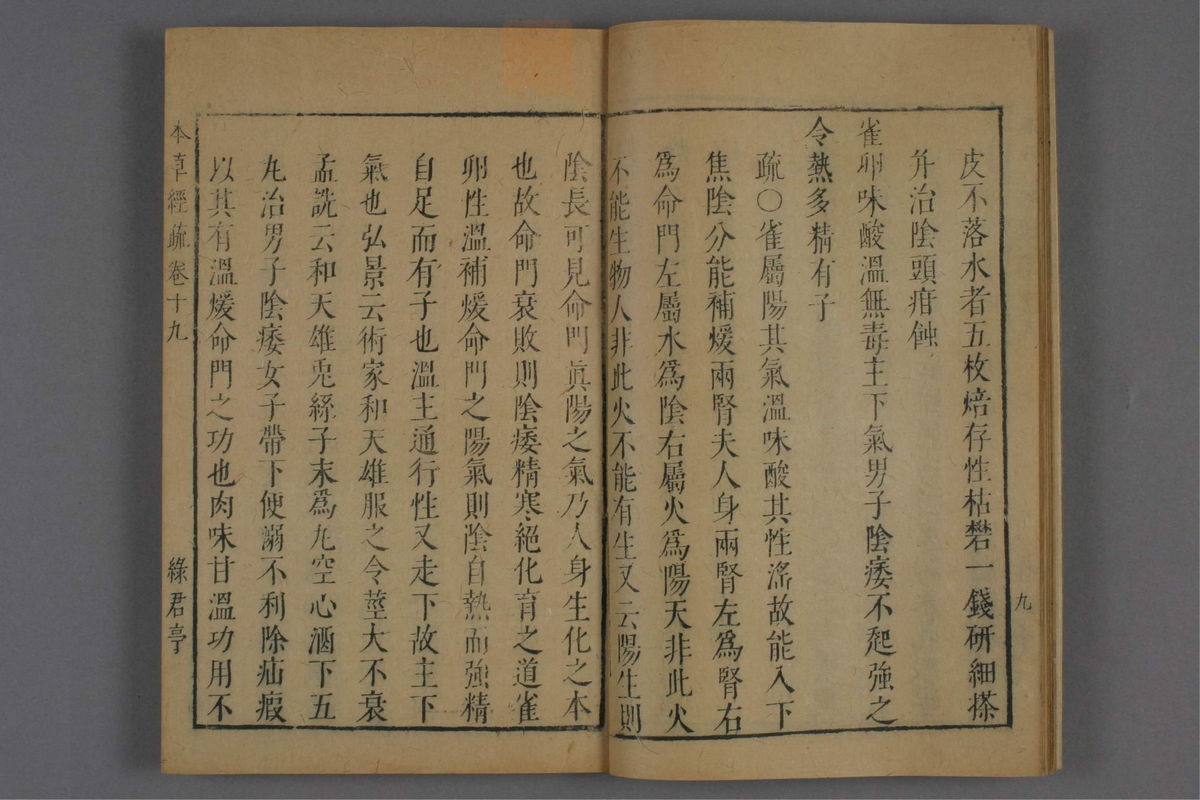 九
皮不落水者五枚焙存性枯礬一錢研細搽
幷治陰頭疳蝕
雀卵味酸溫無毒主下氣男子陰痿不起強之
令熱多精有子
疏〇雀屬陽其氣溫味酸其性淫故能入下
焦陰分能補煖兩腎夫人身兩腎左爲腎右
爲命門左屬水爲陰右屬火爲陽天非此火
不能生物人非此火不能有生又云陽生則
陰長可見命門眞陽之氣乃人身生化之本
也故命門衰敗則陰痿精寒絕化育之道雀
卵性溫補煖命門之陽氣則陰自熱而強精
自足而有子也溫主通行性又走下故主下
氣也弘景云術家和天雄服之令莖大不衰
孟詵云和天雄兎絲子末爲丸空心酒下五
丸治男子陰痿女子帶下便溺不利除疝瘕
以其有溫煖命門之功也肉味甘溫功用不
本草經疏卷十九
綠君亭